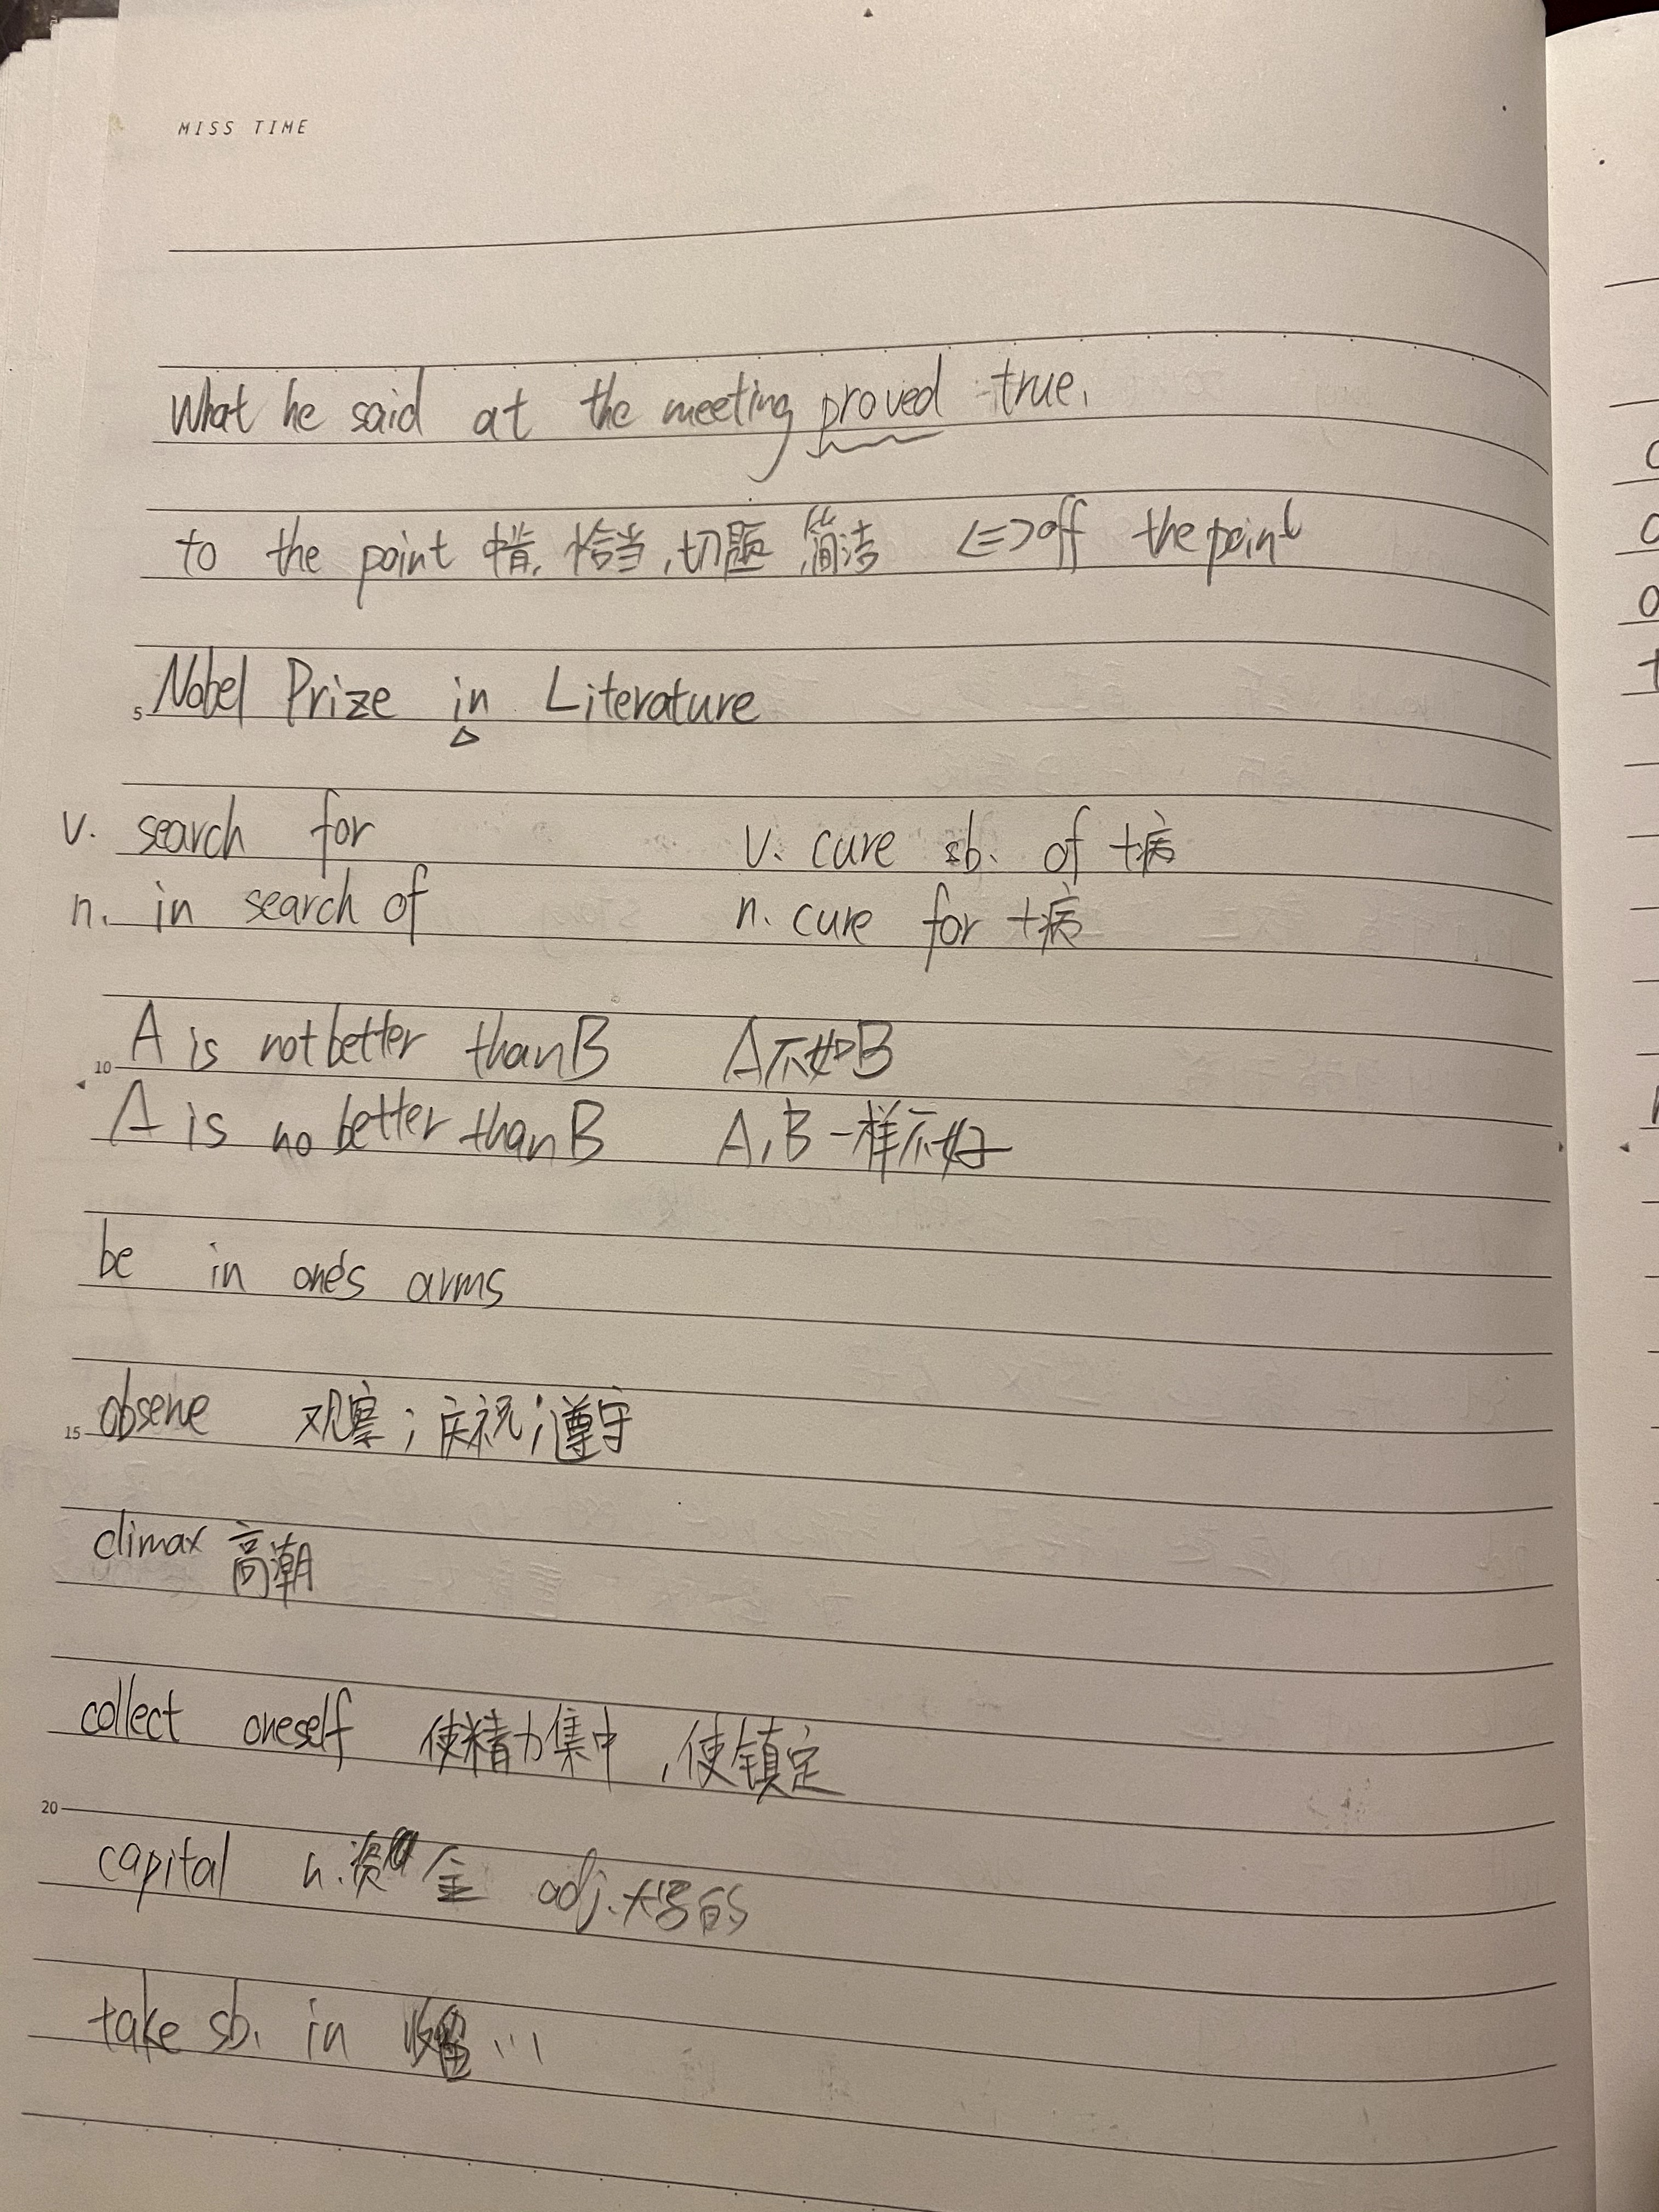 MISS TIME
What he said at the meeting proved true.
to the point 中肯,恰当,切题,简洁 <=> off the point
5 Nobel Prize in Literature
v. search for v. cure sb. of +病
n. in search of n. cure for +病
10 A is not better than B A不如B
A is no better than B A,B一样不好
be in one's arms
15 observe 观察;庆祝;遵守
climax 高潮
collect oneself 使精力集中,使镇定
20 capital n. 资金 adj. 大写的
take sb. in 收留…